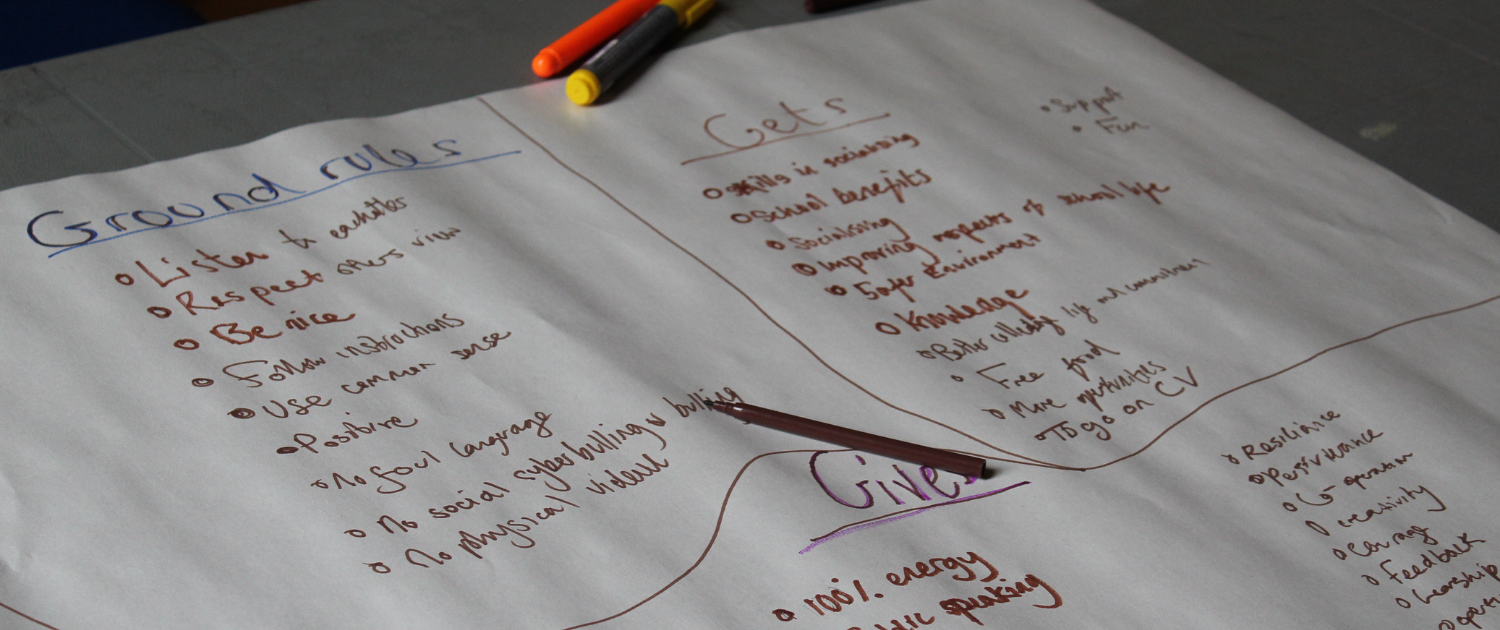 Ground rules
Listen to eachother
Respect others view
Be nice
Follow instructions
Use common sense
Positive
No foul language
No social cyberbulling & bulling
No physical
Gets
Skills in socialising
School benefits
Socialising
Improving respects of school life
Safer Environment
Knowledge
Better
Free food
More
To go on CV
Support
Fun
Gives
100% energy
speaking
Resiliance
Co-operation
creativity
Courage
Feedback